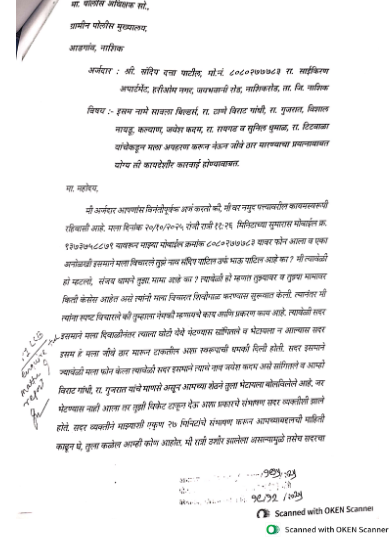 मा. पोलीस अधिक्षक सो.,
ग्रामीन पोलीस मुख्यालय,
आडगांव, नाशिक
अर्जदार : श्री. संदिप दत्ता पाटील, मो.नं. ८०८०२७७७८३ रा. साईकिरण
अपार्टमेंट, हरीओम नगर, जयभवानी रोड, नाशिकरोड, ता. जि. नाशिक
विषय :- इसम नामे सावला बिल्डर्स, रा. ठाणे विराट गांधी, रा. गुजरात, विशाल
नायडू, कल्याण, जयेश कदम, रा. रायगड व सुनिल धुमाळ, रा. टिटवाळा
यांचेकडून मला अपहरण करून नेऊन जीवे ठार मारण्याचा प्रयत्नाबाबत
योग्य ती कायदेशीर कारवाई होण्याबाबत.
मा. महोदय,
मी अर्जदार आपणांस विनंतीपूर्वक अर्ज करतो की, मी वर नमुद पत्त्यावरील कायमस्वरूपी
रहिवासी आहे. मला दिनांक २०/१०/२०२५ रोजी रात्री ११:२६ मिनिटांच्या सुमारास मोबाईल क्र.
९३७३७५८८७९ यावरून माझ्या मोबाईल क्रमांक ८०८०२७७७८३ यावर फोन आला व एका
अनोळखी इसमाने मला विचारले तुझे नाव संदिप पाटील उर्फ भाऊ पाटील आहे का ? मी त्यावेळी
हो म्हटलो, संजय धामने तुझा मामा आहे का ? त्यावेळी हो म्हणत तुझ्यावर व तुझ्या मामावर
किती केसेस आहेत असे त्यांनी मला विचारत शिवीगाळ करण्यास सुरूवात केली. त्यानंतर मी
त्यांना स्पष्ट विचारले की तुम्हाला नेमकी म्हणायचे काय आणि प्रकरण काय आहे. त्यावेळी सदर
इसमाने मला दिवाळीनंतर त्याला खोटी येथे भेटण्यास सांगितले व भेटायला न आल्यास सदर
इसम हे मला जीवे ठार मारून टाकतील अशा स्वरूपाची धमकी दिली होती. सदर इसमाने
ज्यावेळी मला फोन केला त्यावेळी सदर इसमाने त्याचे नाव जयेश कदम असे सांगितले व आम्हो
विराट गांधी, रा. गुजरात यांचे माणसे असून आपच्या शेठने तुला भेटायला बोलविलेले आहे, जर
भेटण्यास नाही आला तर तुझी विकेट टाकून देऊ अशा प्रकारचे संभाषण सदर व्यक्तीने झाले
होते. सदर व्यक्तीने माझ्याशी एकूण २७ मिनिटांचे संभाषण करून आपच्याबद्दलची माहिती
काढून घे, तुला कळेल आम्ही कोण आहोत. मी रात्री उशीर झालेला असल्यामुळे तसेच सदरचा
Scanned with OKEN Scanner
Scanned with OKEN Scanner